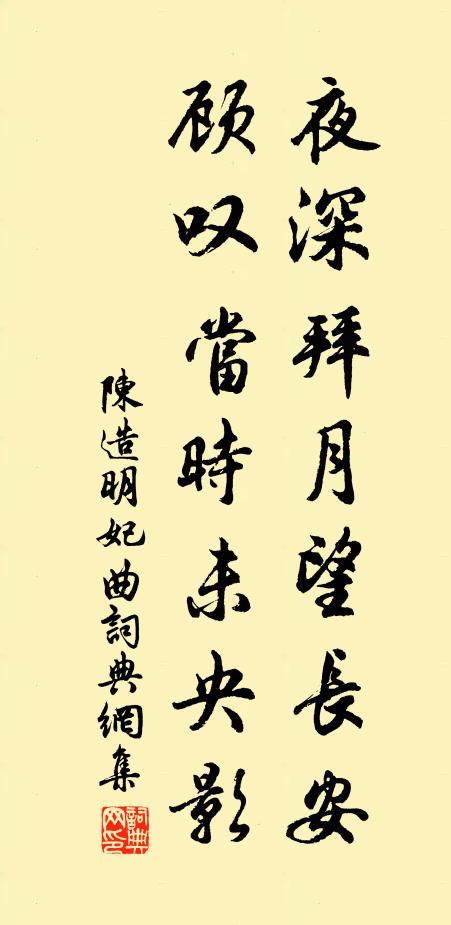 夜深拜月望長安
顾叹當時未央影
陳造明妃曲詞典網集
詞典网印